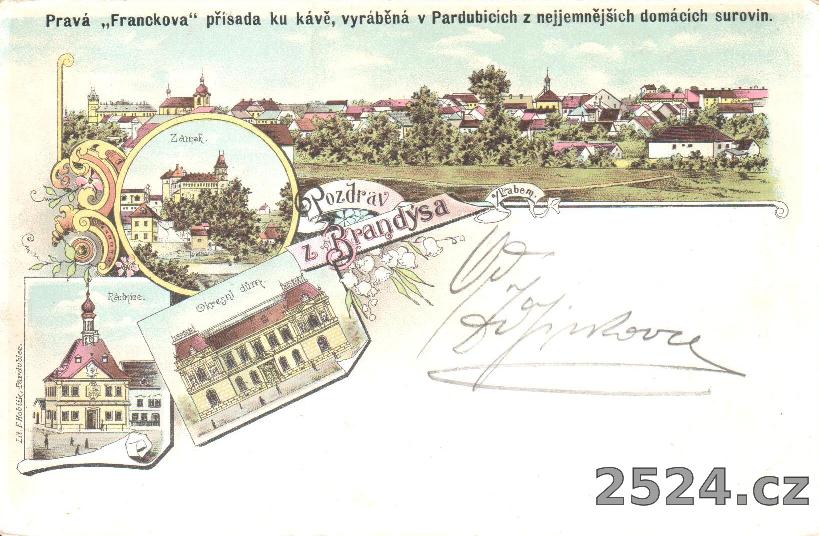 Pravá „Franckova“ přísada ku kávě, vyráběná v Pardubicích z nejjemnějších domácích surovin.
Zámek.
Pozdrav
z Brandýsa
n/Labem.
Radnice.
Okresní dům.
Lit. F. Hoblík, Pardubice.
2524.cz